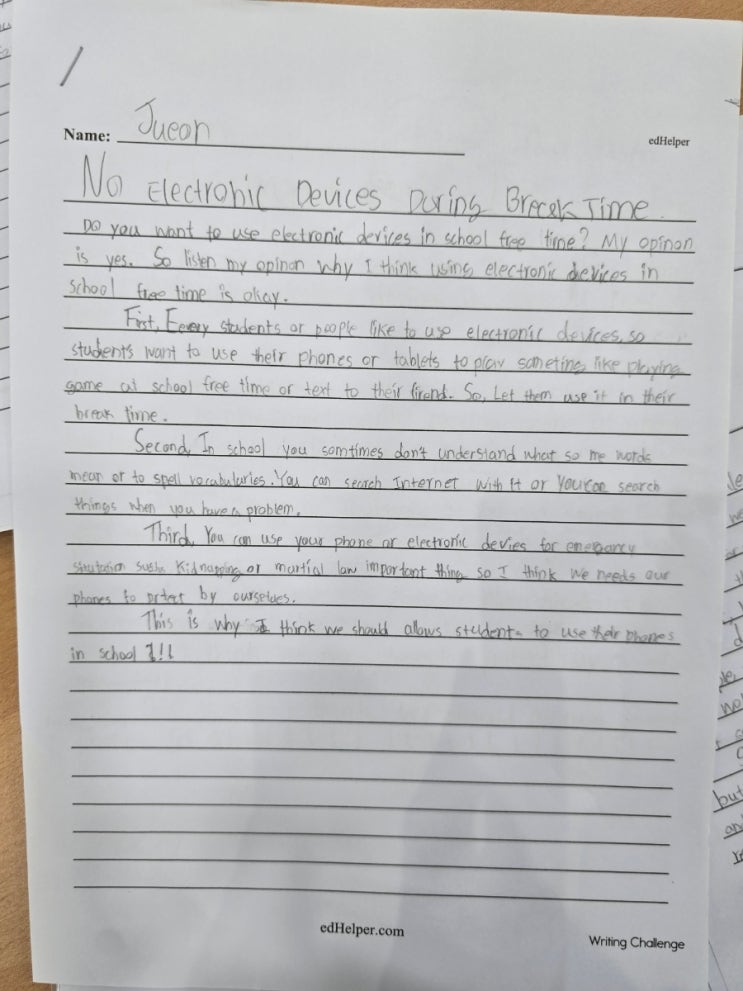 /
Name: Jueon
edHelper
No Electronic Devices During Brecek Time.
Do you want to use electronic devices in school free time? My opinon
is yes. So listen my opinon why I think using electronic devices in
school free time is okay.
First, Eevey students or people like to use electronic devices, so
students want to use their phones or tablets to play someting like playing
game at school free time or text to their firend. So, Let them use it in their
break time.
Second, In school you somtimes don't understand what so me words
mean or to spell vocabularies. You can search Internet with it or you can search
things when you have a problem.
Third, You can use your phone or electronic devies for emergancy
situtation sush Kidnapping or martial law important thing so I think we needs our
phones to prtect by ourselves.
This is why I think we should allows students to use their phones
in school !!!
edHelper.com
Writing Challenge